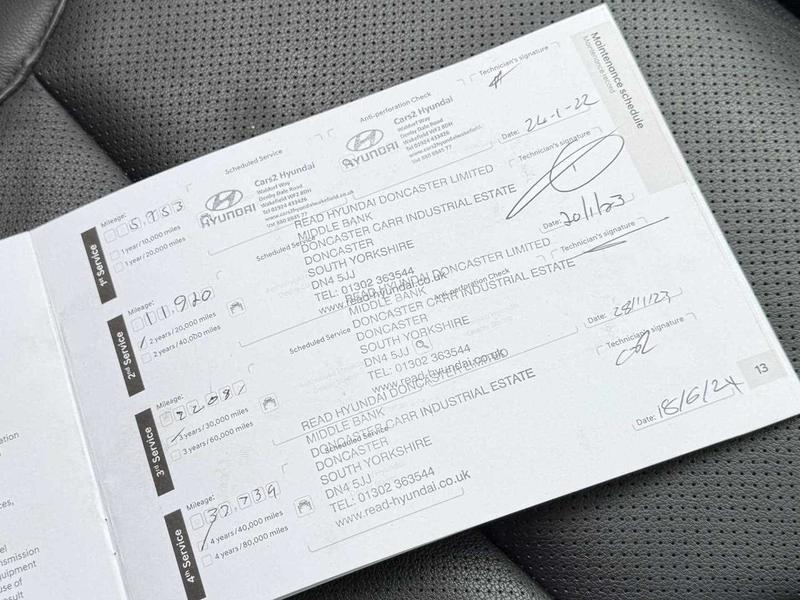 Maintenance schedule
Maintenance record
1st Service
Mileage:
5,953
1 year/10,000 miles
1 year/20,000 miles
Scheduled Service
HYUNDAI
Cars2 Hyundai
Waldorf Way
Denby Dale Road
Wakefield WF2 8DH
Tel 01924 433426
www.cars2hyundaiwakefield.co.uk
Anti-perforation Check
HYUNDAI
Cars2 Hyundai
Waldorf Way
Denby Dale Road
Wakefield WF2 8DH
Tel 01924 433426
www.cars2hyundaiwakefield.
Technician's signature
Date: 24-1-22
2nd Service
Mileage:
11,920
2 years/20,000 miles
2 years/40,000 miles
Scheduled Service
READ HYUNDAI DONCASTER LIMITED
MIDDLE BANK
DONCASTER CARR INDUSTRIAL ESTATE
DONCASTER
SOUTH YORKSHIRE
DN4 5JJ
TEL: 01302 363544
www.read-hyundai.co.uk
Technician's signature
Date: 20/1/23
3rd Service
Mileage:
3 years/30,000 miles
3 years/60,000 miles
Scheduled Service
READ HYUNDAI DONCASTER LIMITED
MIDDLE BANK
DONCASTER CARR INDUSTRIAL ESTATE
DONCASTER
SOUTH YORKSHIRE
DN4 5JJ
TEL: 01302 363544
www.read-hyundai.co.uk
Anti-perforation Check
Technician's signature
Date: 28/11/23
4th Service
Mileage:
32,739
4 years/40,000 miles
4 years/80,000 miles
Scheduled Service
READ HYUNDAI DONCASTER LIMITED
MIDDLE BANK
DONCASTER CARR INDUSTRIAL ESTATE
DONCASTER
SOUTH YORKSHIRE
DN4 5JJ
TEL: 01302 363544
www.read-hyundai.co.uk
Technician's signature
Date: 18/6/24
13